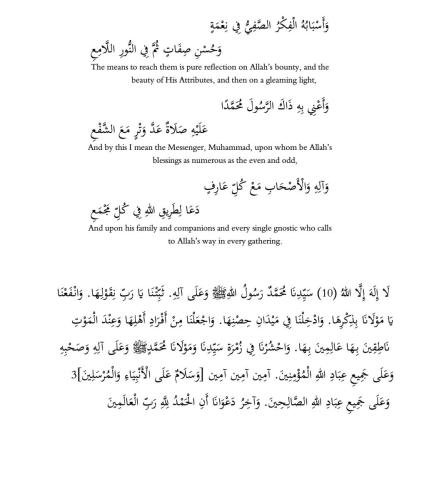 وَأَسْبَابُهُ الْفِكْرُ الصَّفِيُّ فِي نِعْمَةٍ
وَحُسْنِ صِفَاتٍ ثُمَّ فِي النُّورِ اللَّامِعِ
The means to reach them is pure reflection on Allah’s bounty, and the
beauty of His Attributes, and then on a gleaming light,
وَأَعْنِي بِهِ ذَاكَ الرَّسُولَ مُحَمَّدًا
عَلَيْهِ صَلَاةٌ عَدَّ وَتْرٍ مَعَ الشَّفْعِ
And by this I mean the Messenger, Muhammad, upon whom be Allah’s
blessings as numerous as the even and odd,
وَآلِهِ وَالْأَصْحَابِ مَعْ كُلِّ عَارِفٍ
دَعَا لِطَرِيقِ اللهِ فِي كُلِّ مَجْمَعِ
And upon his family and companions and every single gnostic who calls
to Allah’s way in every gathering.
لَا إِلَهَ إِلَّا اللهُ (10) سَيِّدِنَا مُحَمَّدٌ رَسُولُ اللهِ ﷺ وَعَلَى آلِهِ. ثَبِّتْنَا يَا رَبِّ بِقَوْلِهَا. وَانْفَعْنَا
يَا مَوْلَانَا بِذِكْرِهَا. وَادْخِلْنَا فِي مَيْدَانِ حِصْنِهَا. وَاجْعَلْنَا مِنْ أَفْرَادِ أَهْلِهَا وَعِنْدَ الْمَوْتِ
نَاطِقِينَ بِهَا عَالِمِينَ بِهَا. وَاحْشُرْنَا فِي زُمْرَةِ سَيِّدِنَا وَمَوْلَانَا مُحَمَّدٍ ﷺ وَعَلَى آلِهِ وَصَحْبِهِ
وَعَلَى جَمِيعِ عِبَادِ اللهِ الْمُؤْمِنِينَ. آمِين آمِين آمِين [وَسَلَامٌ عَلَى الْأَنْبِيَاءِ وَالْمُرْسَلِينَ]3
وَعَلَى جَمِيعِ عِبَادِ اللهِ الصَّالِحِينَ. وَآخِرُ دَعْوَانَا أَنِ الْحَمْدُ لِلَّهِ رَبِّ الْعَالَمِينَ